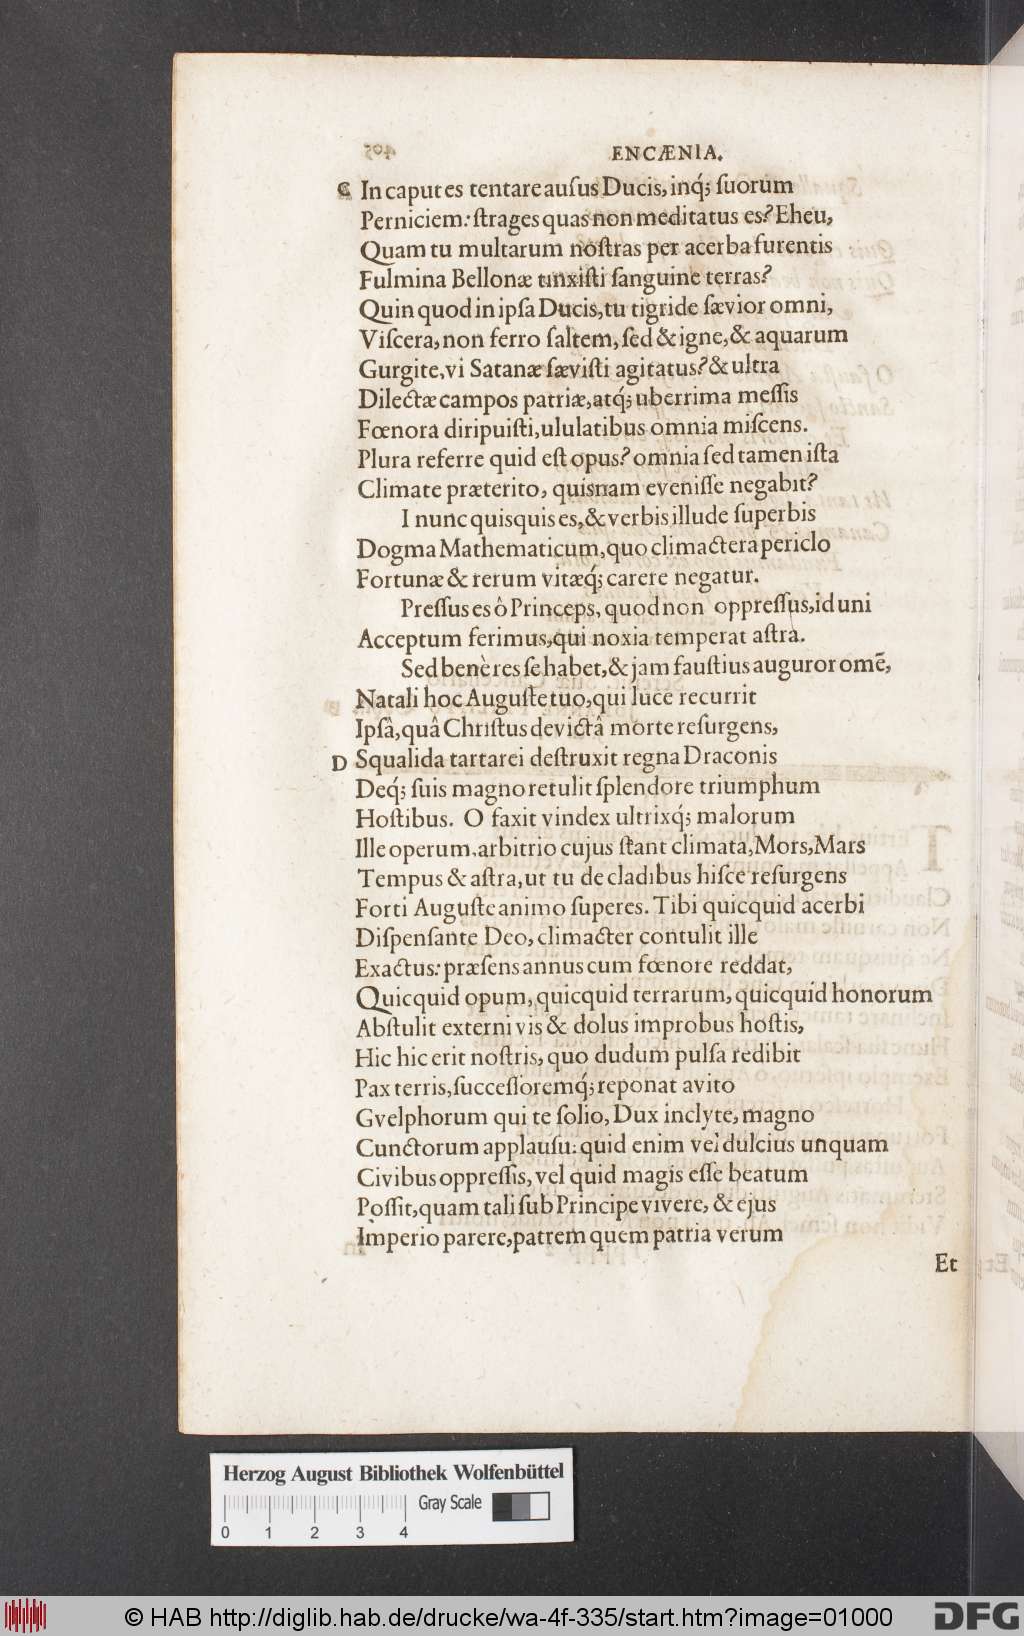 ENCÆNIA.
C In caput es tentare auſus Ducis, inq́; ſuorum
Perniciem: ſtrages quas non meditatus es? Eheu,
Quam tu multarum noſtras per acerba furentis
Fulmina Bellonæ unxiſti ſanguine terras?
Quin quod in ipſa Ducis, tu tigride ſævior omni,
Viſcera, non ferro ſaltem, ſed & igne, & aquarum
Gurgite, vi Satanæ ſæviſti agitatus? & ultra
Dilectæ campos patriæ, atq́; uberrima meſſis
Fœnora diripuiſti, ululatibus omnia miſcens.
Plura referre quid eſt opus? omnia ſed tamen iſta
Climate præterito, quisnam eveniſſe negabit?
I nunc quisquis es, & verbis illude ſuperbis
Dogma Mathematicum, quo climactera periclo
Fortunæ & rerum vitæq́; carere negatur.
Preſſus es ô Princeps, quod non oppreſſus, id uni
Acceptum ferimus, qui noxia temperat aſtra.
Sed benè res ſe habet, & jam fauſtius auguror omē,
Natali hoc Auguſte tuo, qui luce recurrit
Ipſâ, quâ Chriſtus devictâ morte reſurgens,
D Squalida tartarei deſtruxit regna Draconis
Deq́; ſuis magno retulit ſplendore triumphum
Hoſtibus. O faxit vindex ultrixq́; malorum
Ille operum, arbitrio cujus ſtant climata, Mors, Mars
Tempus & aſtra, ut tu de cladibus hiſce reſurgens
Forti Auguſte animo ſuperes. Tibi quicquid acerbi
Diſpenſante Deo, climacter contulit ille
Exactus: præſens annus cum fœnore reddat,
Quicquid opum, quicquid terrarum, quicquid honorum
Abſtulit externi vis & dolus improbus hoſtis,
Hic hic erit noſtris, quo dudum pulſa redibit
Pax terris, ſucceſſioremq́; reponat avito
Gvelphorum qui te ſolio, Dux inclyte, magno
Cunctorum applauſu: quid enim vel dulcius unquam
Civibus oppreſſis, vel quid magis eſſe beatum
Poſſit, quam tali ſub Principe vivere, & ejus
Imperio parere, patrem quem patria verum
Et
Herzog August Bibliothek Wolfenbüttel
Gray Scale
0 1 2 3 4
© HAB http://diglib.hab.de/drucke/wa-4f-335/start.htm?image=01000
DFG